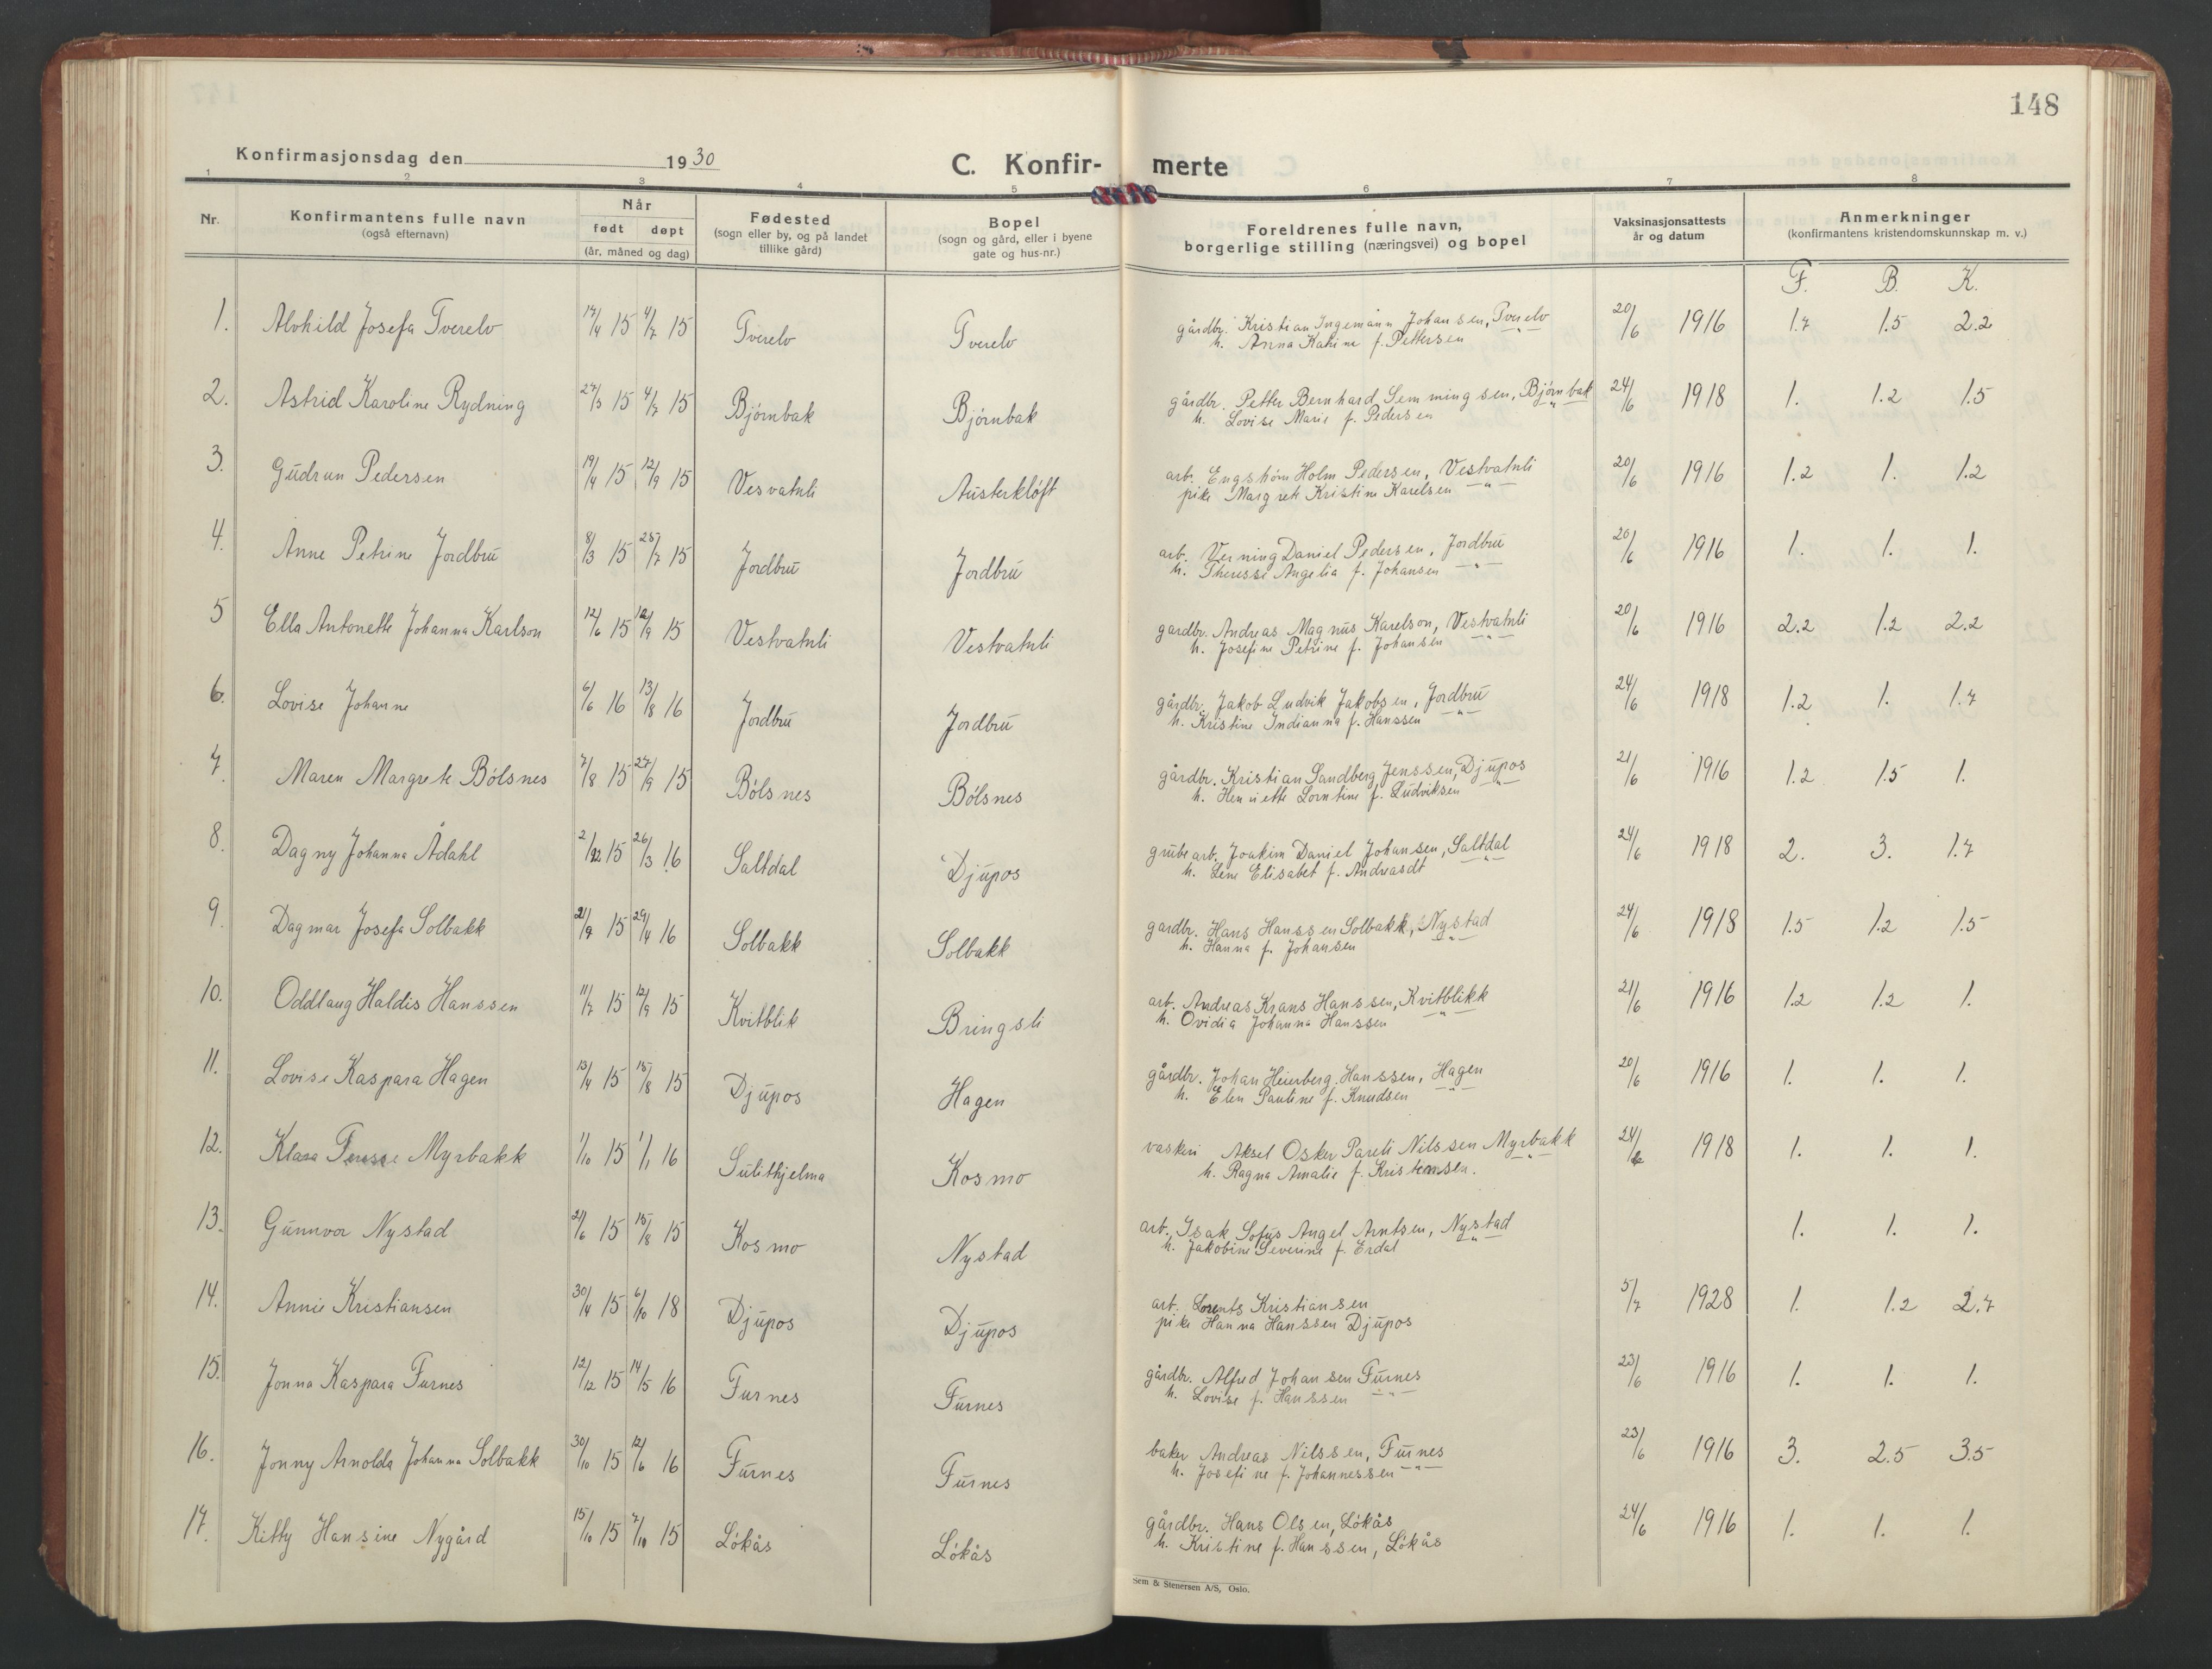 148
Konfirmasjonsdag den 1930
C. Konfir- merte
1 2 3 4 5 6 7 8
Nr. Konfirmantens fulle navn (også efternavn) Når født døpt (år, måned og dag) Fødested (sogn eller by, og på landet tillike gård) Bopel (sogn og gård, eller i byene gate og hus-nr.) Foreldrenes fulle navn, borgerlige stilling (næringsvei) og bopel Vaksinasjonsattests år og datum Anmerkninger (konfirmantens kristendomskunnskap m. v.)
F. B. K.
1. Alvhild Josefa Tverelv 14/4 15 4/7 15 Tverelv Tverelv gårdbr. Kristian Ingemann Johansen, Tverelv 20/6 1916 1.7 1.5 2.2
h. Anna Katrine f. Pettersen —"—
2. Astrid Karoline Rydning 27/3 15 4/7 15 Bjørnbak Bjørnbak gårdbr. Petter Bernhard Semmingsen, Bjørnbak 24/6 1918 1. 1.2 1.5
h. Lovise Marie f. Pedersen —"—
3. Gudrun Pedersen 19/4 15 12/9 15 Vesvatnli Austerkløft arb. Engstrøm Holm Pedersen, Vestvatnli 20/6 1916 1.2 1. 1.2
pike Margrete Kristine Karelsen —"—
4. Anne Petrine Jordbru 8/3 15 25/7 15 Jordbru Jordbru arb. Verning Daniel Pedersen, Jordbru 20/6 1916 1. 1. 1.
h. Theresse Angelia f. Johansen —"—
5 Ella Antonette Johanna Karlson 12/6 15 12/9 15 Vestvatnli Vestvatnli gardbr. Andreas Magnus Karelson, Vestvatnli 20/6 1916 2.2 1.2 2.2
h. Josefine Petrine f. Johansen —"—
6. Lovise Johanne 6/6 16 13/8 16 Jordbru Jordbru gårdbr. Jakob Ludvik Jakobsen, Jordbru 24/6 1918 1.2 1. 1.7
h. Kristine Indianna f. Hanssen —"—
7. Maren Margrete Bølsnes 7/8 15 27/9 15 Bølsnes Bølsnes gårdbr. Kristian Sandberg Jenssen, Djupos 21/6 1916 1.2 1.5 1.
h. Henriette Lorntine f. Ludviksen —"—
8. Dagny Johanna Ådahl 2/12 15 26/3 16 Saltdal Djupos grubearb. Joakim Daniel Johansen, Saltdal 24/6 1918 2. 3. 1.7
h. Lene Elisabet f. Andreasdt —"—
9. Dagmar Josefa Solbakk 21/9 15 29/4 16 Solbakk Solbakk gardbr. Hans Hanssen Solbakk, Nystad 24/6 1918 1.5 1.2 1.5
h. Hanna f. Johansen —"—
10. Oddlaug Haldis Hanssen 11/7 15 12/9 15 Kvitblik Bringsli arb. Andreas Krans Hanssen, Kvitblikk 21/6 1916 1.2 1.2 1.
h. Ovidia Johanna Hanssen —"—
11. Lovise Kaspara Hagen 13/4 15 15/8 15 Djupos Hagen gårdbr. Johan Heierberg Hanssen, Hagen 20/6 1916 1. 1. 1.
h. Elen Pauline f. Knudsen —"—
12. Klara Teresse Myrbakk 1/10 15 1/1 16 Sulithjelma Kosmo vaskeri Aksel Osker Pareli Nilssen Myrbakk 24/6 1918 1. 1. 1.
h. Ragna Amalie f. Kristensen. —"—
13. Gunnvor Nystad 21/6 15 15/8 15 Kosmo Nystad arb. Isak Sofus Angel Arntsen, Nystad 1. 1. 1.
h. Jakobine Severine f. Erdal —"—
14. Annie Kristiansen 30/4 15 6/10 18 Djupos Djupos arb. Lorents Kristiansen 5/7 1928 1. 1.2 2.7
pike Hanna Hanssen Djupos
15. Jonna Kaspara Furnes 12/12 15 14/5 16 Furnes Furnes gårdbr. Alfred Johansen Furnes 23/6 1916 1. 1. 1.
h. Lovise f. Hanssen —"—
16. Jonny Arnolda Johanna Solbakk 30/10 15 12/6 16 Furnes Furnes baker Andreas Nilssen, Furnes 23/6 1916 3. 2.5 3.5
h. Josefine f. Johannessen —"—
17. Kitty Hansine Nygård 15/10 15 7/10 15 Løkås Løkås gårdbr. Hans Olsen, Løkås 24/6 1916 1. 1. 1.
h. Kristine f. Hanssen, Løkås
Sem & Stenersen A/S, Oslo.